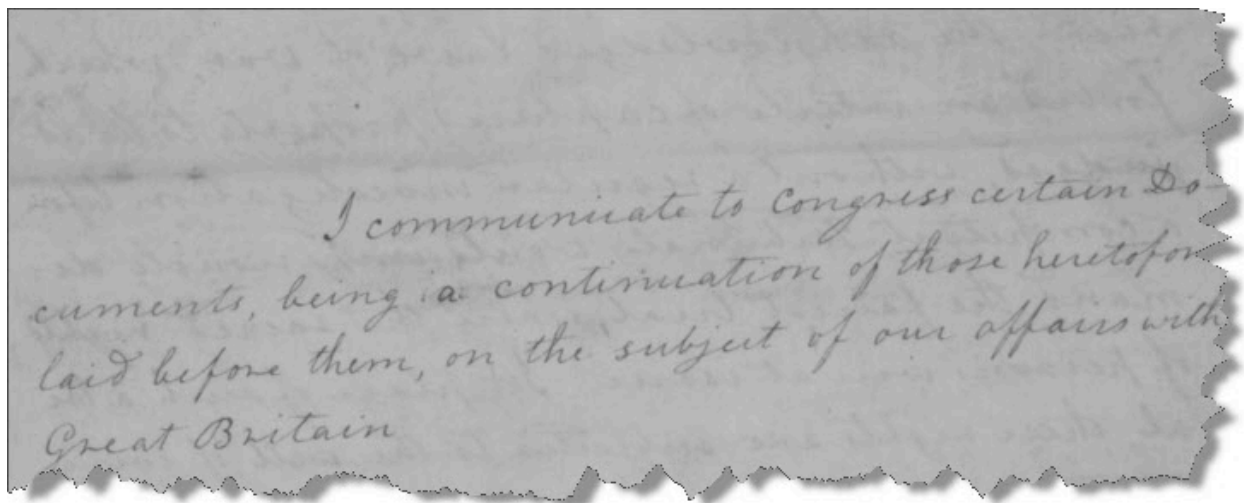 I communicate to Congress certain Do-
cuments, being a continuation of those heretofor
laid before them, on the subject of our affairs with
Great Britain